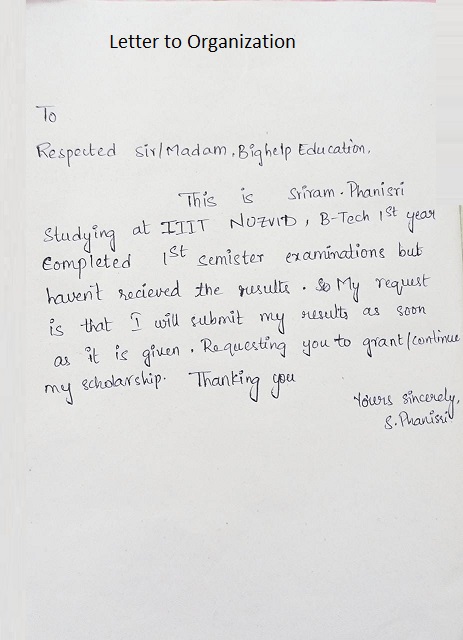 Letter to Organization
To
Respected Sir/Madam, Bighelp Education.
This is Sriram. Phanisri
Studying at IIIT NUZVID, B-Tech 1st year
Completed 1st semister examinations but
haven't recieved the results. So My request
is that I will submit my results as soon
as it is given. Requesting you to grant/continue
my scholarship. Thanking you
Yours sincerely,
S. Phanisri